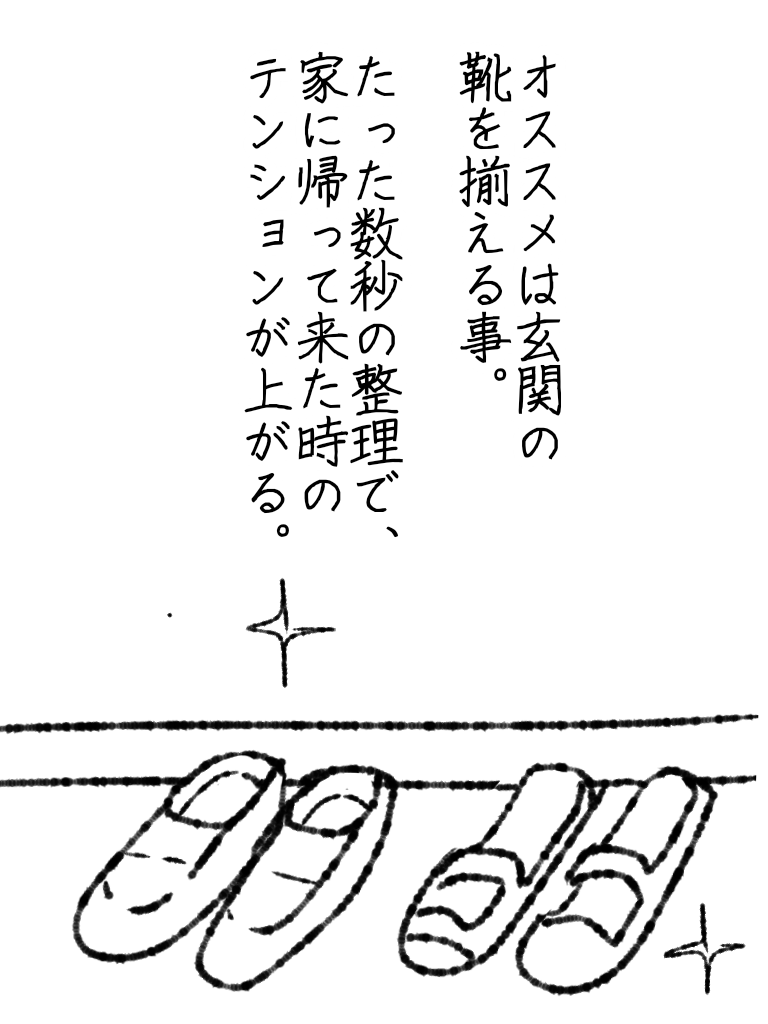 オススメは玄関の
靴を揃える事。
たった数秒の整理で、
家に帰って来た時の
テンションが上がる。